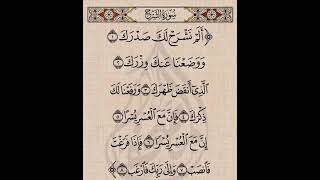 سُورَةُ الشَّرْحِ
﴿ أَلَمْ نَشْرَحْ لَكَ صَدْرَكَ ١
وَوَضَعْنَا عَنكَ وِزْرَكَ ٢
الَّذِي أَنقَضَ ظَهْرَكَ ٣ وَرَفَعْنَا لَكَ
ذِكْرَكَ ٤ فَإِنَّ مَعَ الْعُسْرِ يُسْرًا ٥
إِنَّ مَعَ الْعُسْرِ يُسْرًا ٦ فَإِذَا فَرَغْتَ
فَانصَبْ ٧ وَإِلَىٰ رَبِّكَ فَارْغَب ٨ ﴾